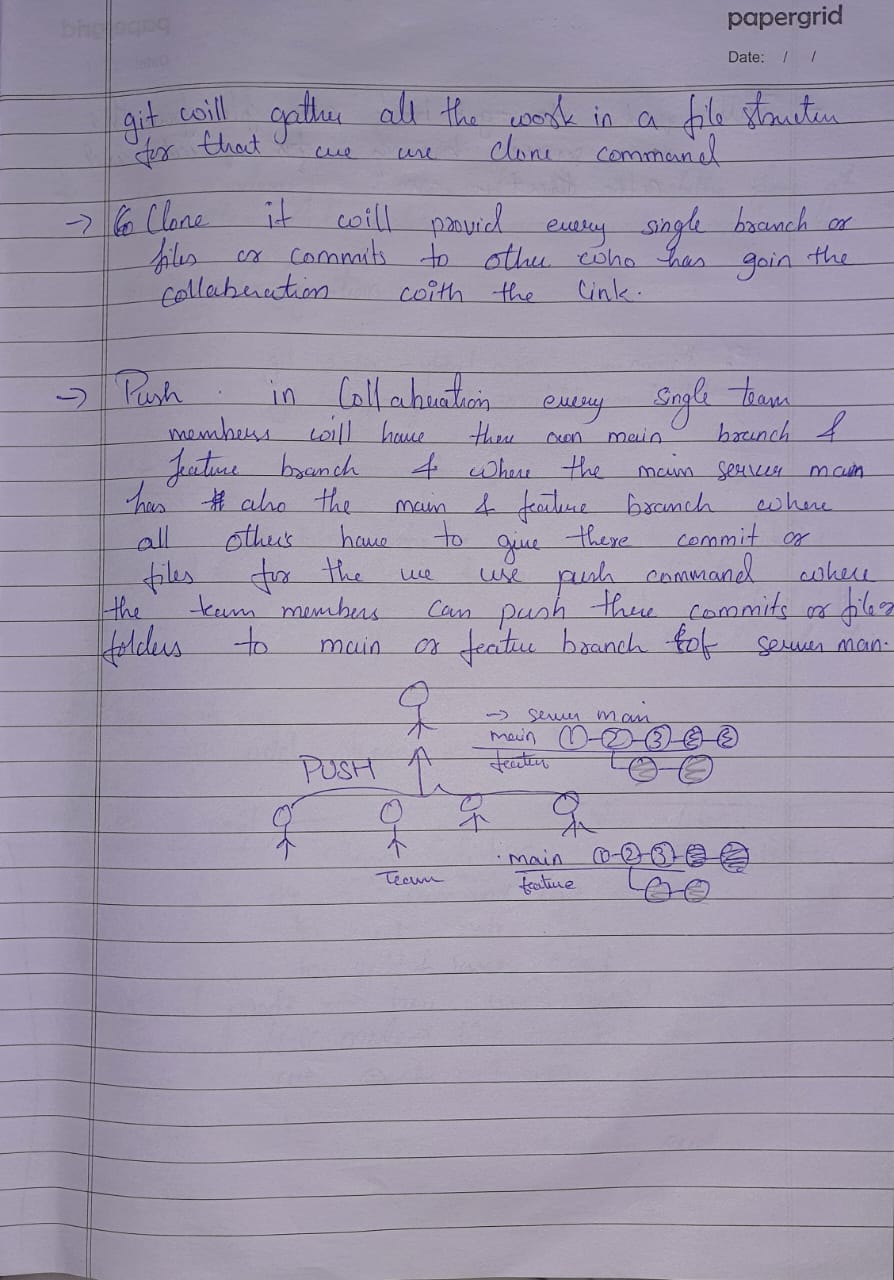 papergrid
Date: / /
git will gather all the work in a file structeu
for that we use clone command
→ Clone it will provid every single branch or
files or commits to other who has goin the
collaberation with the link.
→ Push in Collaberation every single team
members will have there own main branch &
feature branch & where the main server main
has also the main & feature branch where
all other's have to give there commit or
files for the we use push command where
the team members can push there commits or files
folders to main or featue branch of server main.
→ server main
main 1 2 3
PUSH featue
main 1 2 3
Team feature